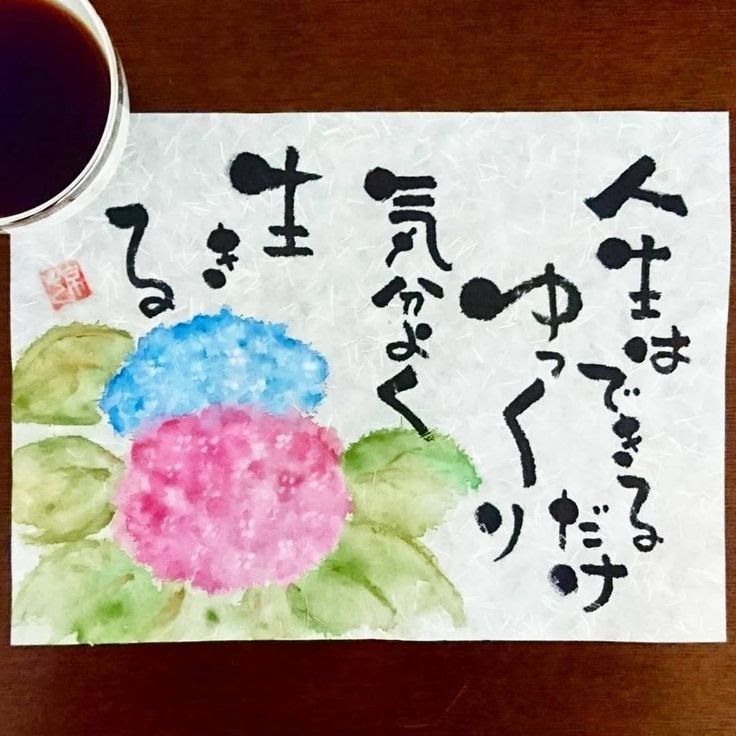 人生はできるだけ
ゆっくり
気分よく
生きる